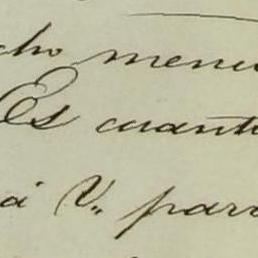 cho menu
Es cuant
á V. par